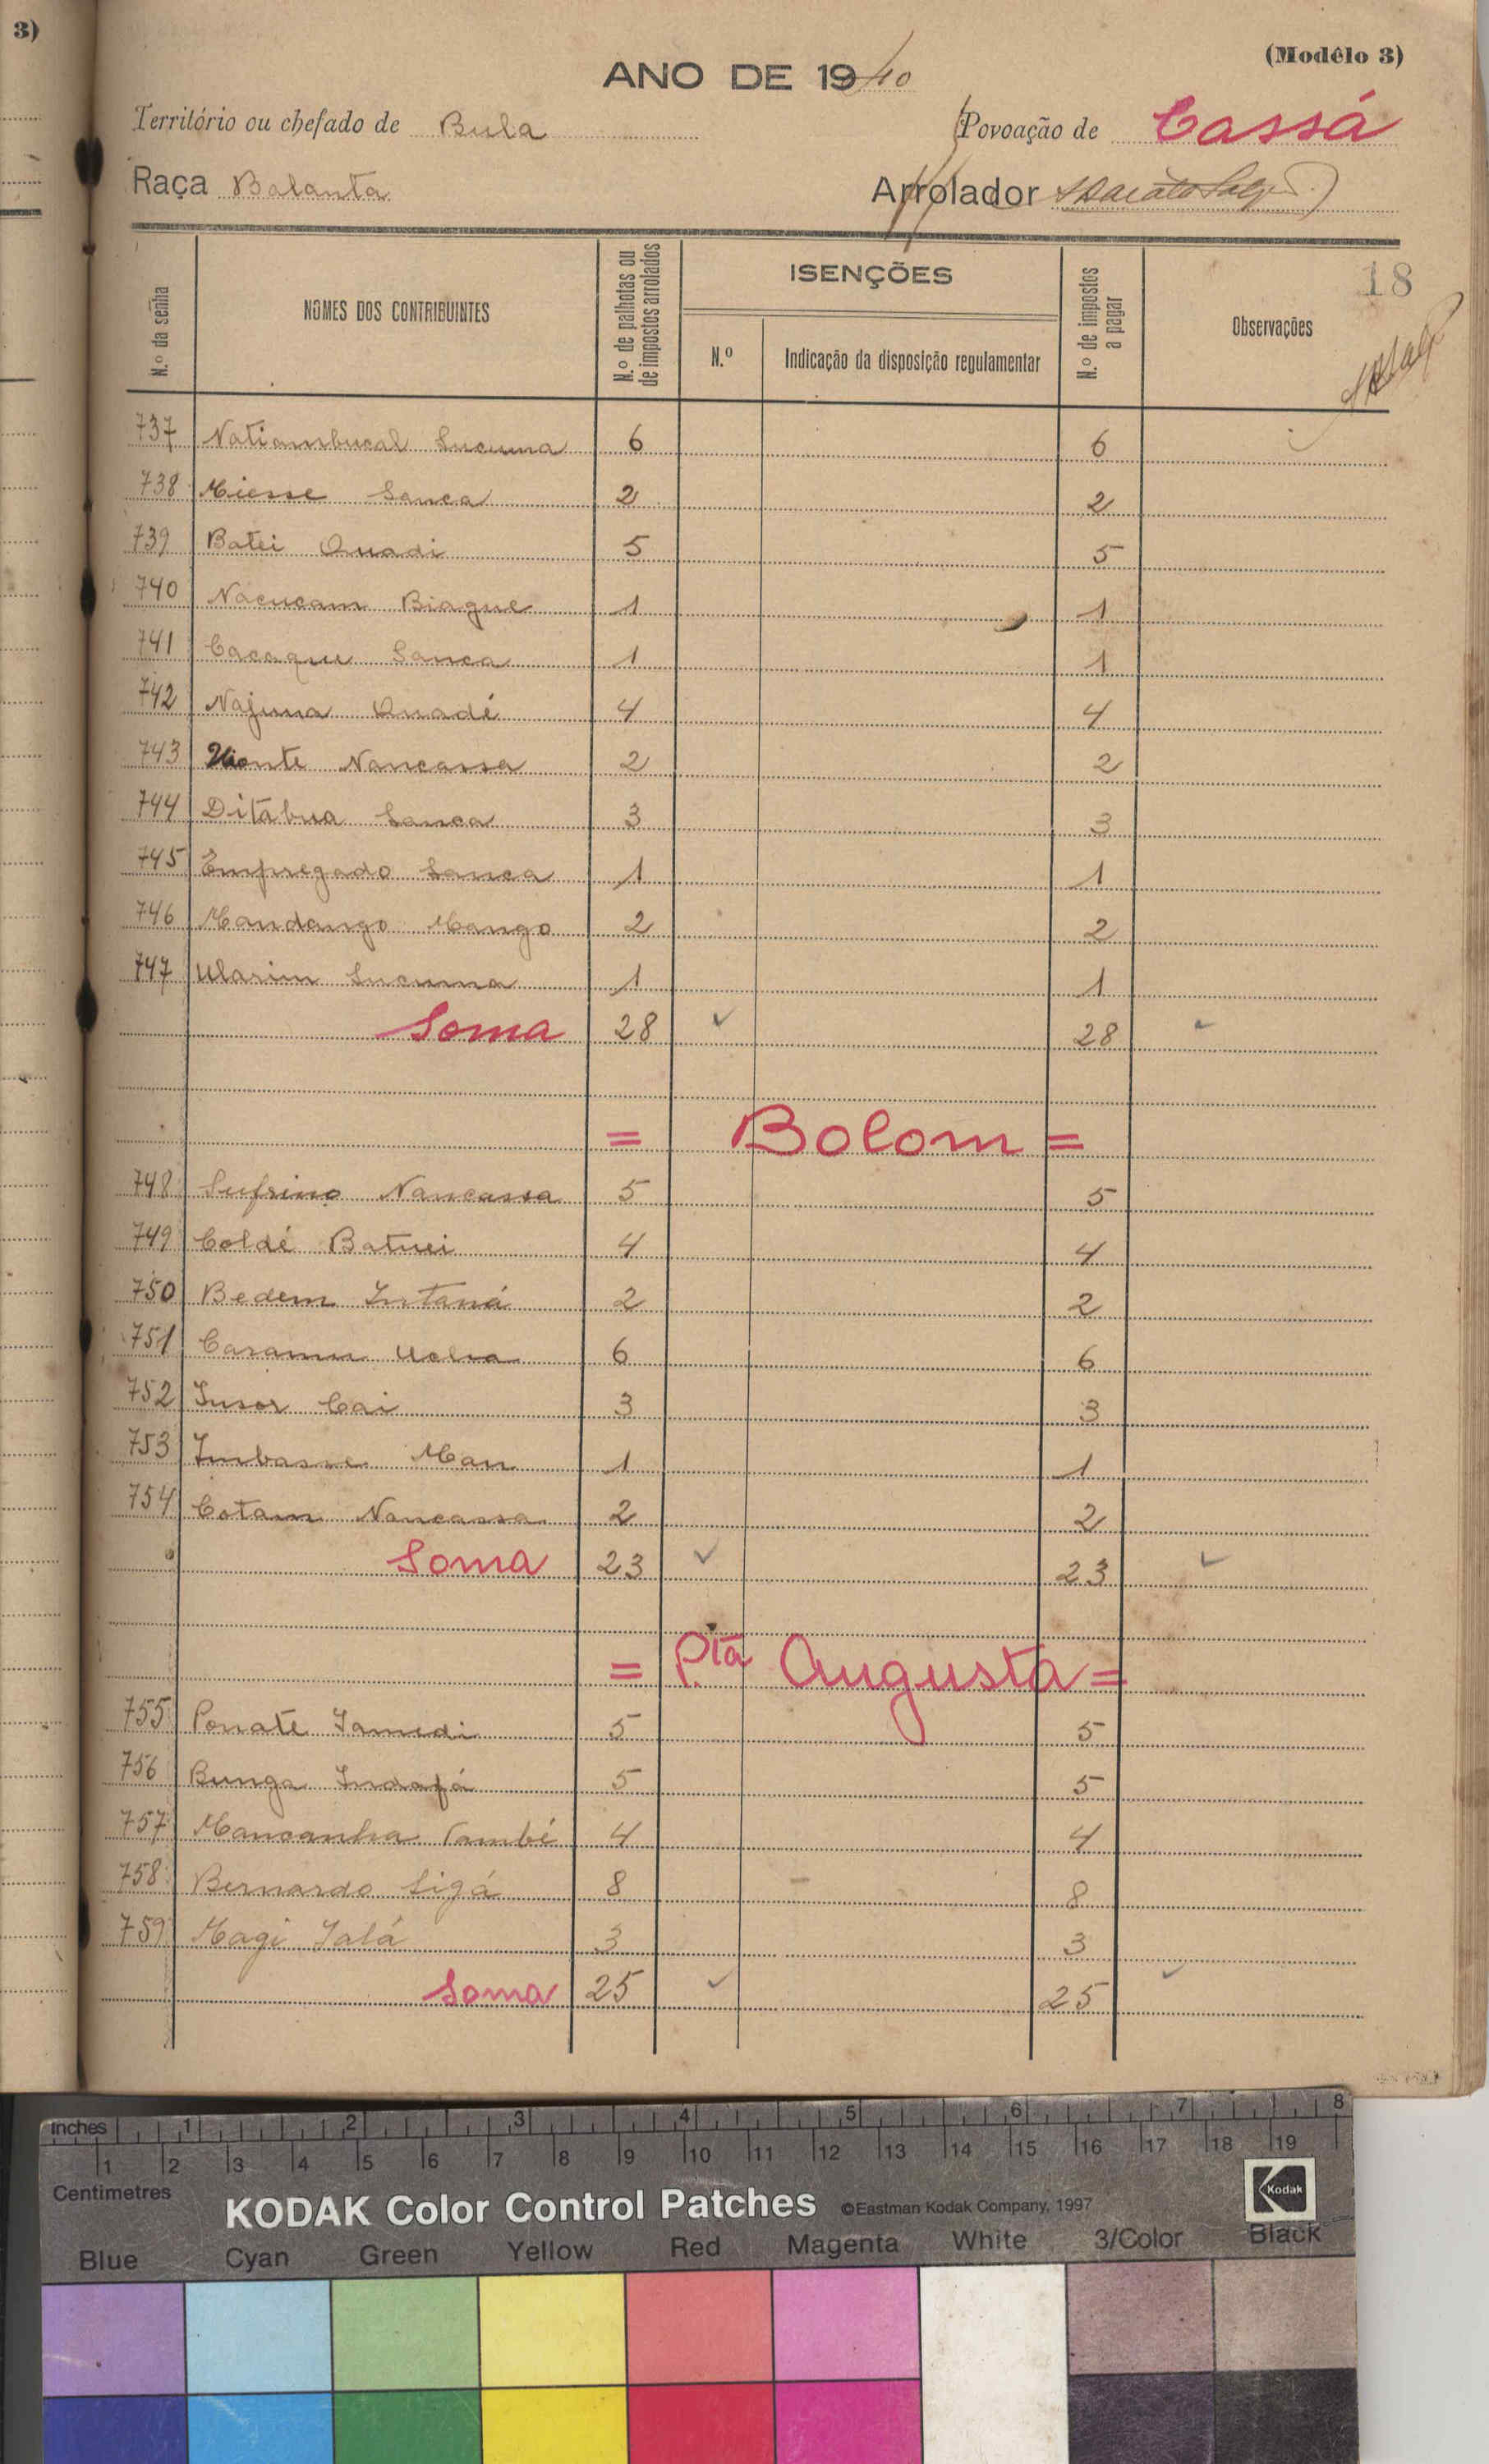 3)
(Modêlo 3)
ANO DE 1940
Território ou chefado de Bula
Povoação de Cassá
Raça Balanta
Arrolador
18
N.º da senha
NOMES DOS CONTRIBUINTES
N.º de palhotas ou de impostos arrolados
ISENÇÕES
N.º
Indicação da disposição regulamentar
N.º de impostos a pagar
Observações
737 Natiambucal Sucuma 6 6
738 Miesse Sanca 2 2
739 Batei Quadi 5 5
740 Nacucam Biague 1 1
741 Cacaque Sanca 1 1
742 Najuna Quadé 4 4
743 Nancassa 2 2
744 Ditabua Sanca 3 3
745 Empregado Sanca 1 1
746 Mandango Mango 2 2
747 Ularim Sucuma 1 1
Soma 28 28
= Bolom =
748 Sufrino Nancassa 5 5
749 Coldé Batuei 4 4
750 Bedem Intaná 2 2
751 Caramu Ucha 6 6
752 Insor Cai 3 3
753 Imbasse Man 1 1
754 Cotam Nancassa 2 2
Soma 23 23
= Pta Augusta =
755 Ponate Iamedi 5 5
756 Bunga Indafá 5 5
757 Mancanha També 4 4
758 Bernardo Sigá 8 8
759 Magi Ialá 3 3
Soma 25 25
inches 1 2 3 4 5 6 7 8
1 2 3 4 5 6 7 8 9 10 11 12 13 14 15 16 17 18 19
Centimetres
KODAK Color Control Patches ©Eastman Kodak Company, 1997 Kodak
Blue Cyan Green Yellow Red Magenta White 3/Color Black